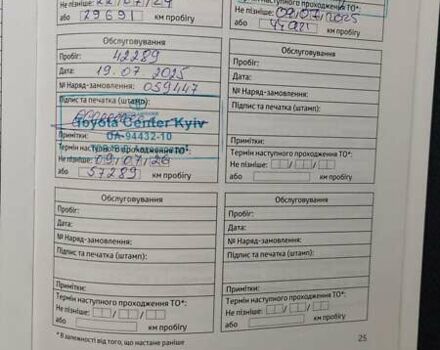 Не пізніше: 22/07/24
або 29691 км пробігу
Термін наступного проходження ТО*:
Не пізніше: 09/07/2025
або 44021 км пробігу
Обслуговування
Пробіг: 42289
Дата: 19.07 2025
№ Наряд-замовлення: 059447
Підпис та печатка (штамп):
Toyota Center Kyiv
Примітки: UA-94432-10
Термін наступного проходження ТО*:
Не пізніше: 09/07/26
або 57289 км пробігу
Обслуговування
Пробіг:
Дата:
№ Наряд-замовлення:
Підпис та печатка (штамп):
Примітки:
Термін наступного проходження ТО*:
Не пізніше: / /
або км пробігу
Обслуговування
Пробіг:
Дата:
№ Наряд-замовлення:
Підпис та печатка (штамп):
Примітки:
Термін наступного проходження ТО*:
Не пізніше: / /
або км пробігу
Обслуговування
Пробіг:
Дата:
№ Наряд-замовлення:
Підпис та печатка (штамп):
Примітки:
Термін наступного проходження ТО*:
Не пізніше: / /
або км пробігу
* В залежності від того, що настане раніше
25